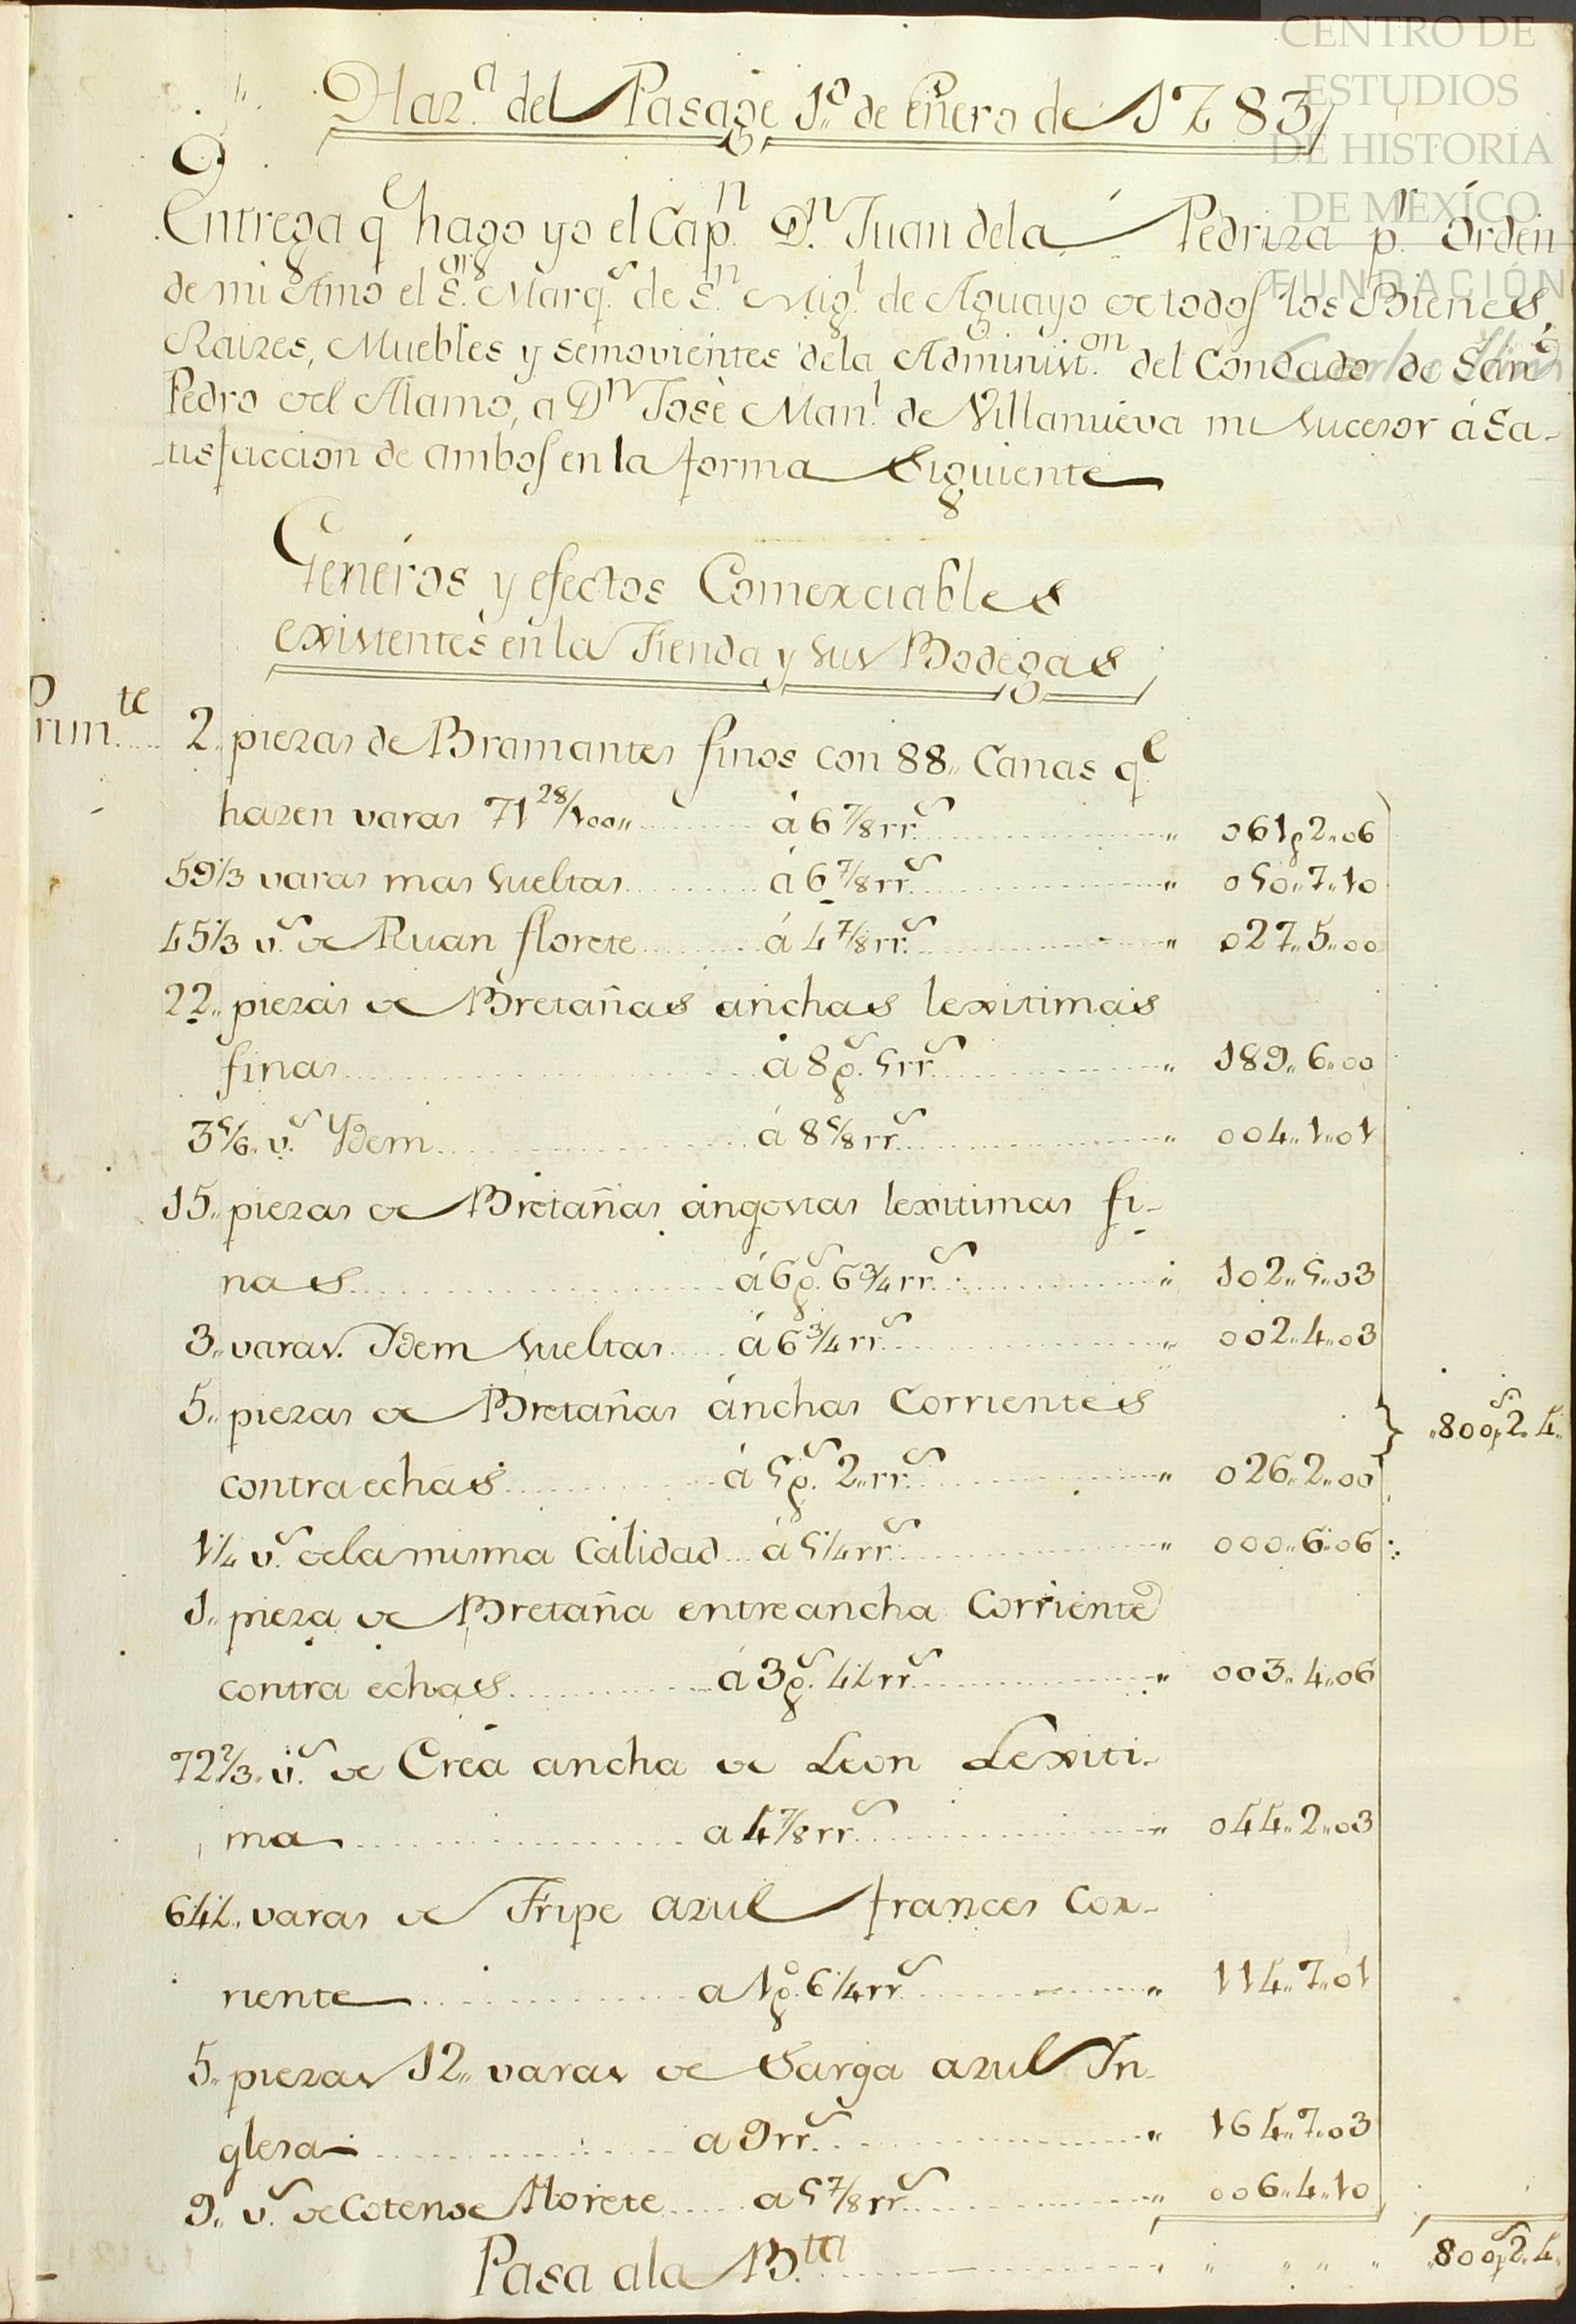 CENTRO DE
ESTUDIOS
DE HISTORIA
DE MÉXICO
FUNDACIÓN
Haz.ª del Pasage 1.º de Enero de 1783
Entrega q.e hago yo el Cap.n D.n Juan dela Pedriza p.r orden
de mi Amo el S.or Marq.s de S.n Mig.l de Aguayo de todos los Bienes,
Raizes, Muebles y semovientes dela Administ.on del Condado de San
Pedro del Alamo, a D.n José Man.l de Villanueva mi sucesor á Sa-
tisfaccion de ambos en la forma Siguiente
Generos y efectos Comerciables
existentes en la Tienda y sus Bodegas
Prim.te 2,, piezas de Bramantes finos con 88,, Canas q.e
hazen varas 71 28/100,, á 6 7/8 rr.s ,, 061p2,,06
59 1/3 varas mas sueltas á 6 7/8 rr.s ,, 050,,7,,10
45 1/3 v.s de Ruan florete á 4 7/8 rr.s ,, 027,,5,,00
22,, piezas de Bretañas anchas lexitimas
finas á 8p.s 5rr.s ,, 189,,6,,00
3 5/6,, v.s Ydem á 8 5/8 rr.s ,, 004,,1,,01
15,, piezas de Bretañas angostas lexitimas fi-
nas á 6p.s 6 3/4 rr.s ,, 102,,5,,03
3,, varas. Ydem sueltas á 6 3/4 rr.s ,, 002,,4,,03
5,, piezas de Bretañas anchas Corrientes
contraechas á 5p.s 2,,rr.s ,, 026,,2,,00
,,800p.s2,,4,,
1 1/4 v.s dela misma Calidad á 5 1/4 rr.s ,, 000,,6,,06
1,, pieza de Bretaña entreancha Corriente
contra echas á 3p.s 4½ rr.s ,, 003,,4,,06
72 2/3,, v.s de Crea ancha de Leon Lexiti-
ma a 4 7/8 rr.s ,, 044,,2,,03
64½,, varas de Tripe azul frances Cor-
riente a 1p.º 6 1/4 rr.s ,, 114,,7,,01
5,, piezas 12,, varas de Sarga azul In-
glesa a 9rr.s ,, 164,,7,,03
9,, v.s de Cotense florete a 5 7/8 rr.s ,, 006,,4,,10
Pasa ala B.ta ,, ,, ,, ,, ,, ,,800p.s2,,4,,